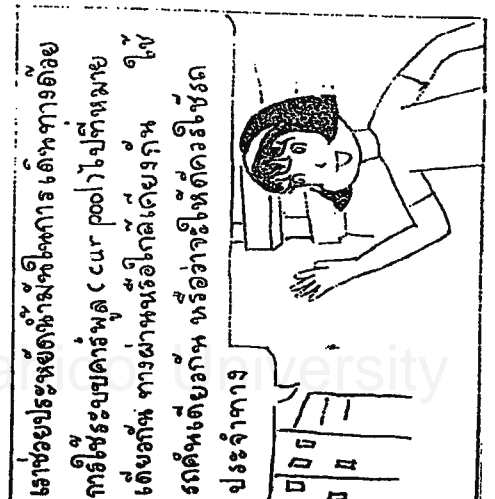 เราช่วยประหยัดน้ำมันในการเดินทางด้วย
การใช้ระบบคาร์พูล (cur pool) ไปที่หมาย
เดียวกัน ทางผ่านหรือใกล้เคียงกัน ใช้
รถคันเดียวกัน หรือว่าจะให้ดีควรใช้รถ
ประจำทาง
University